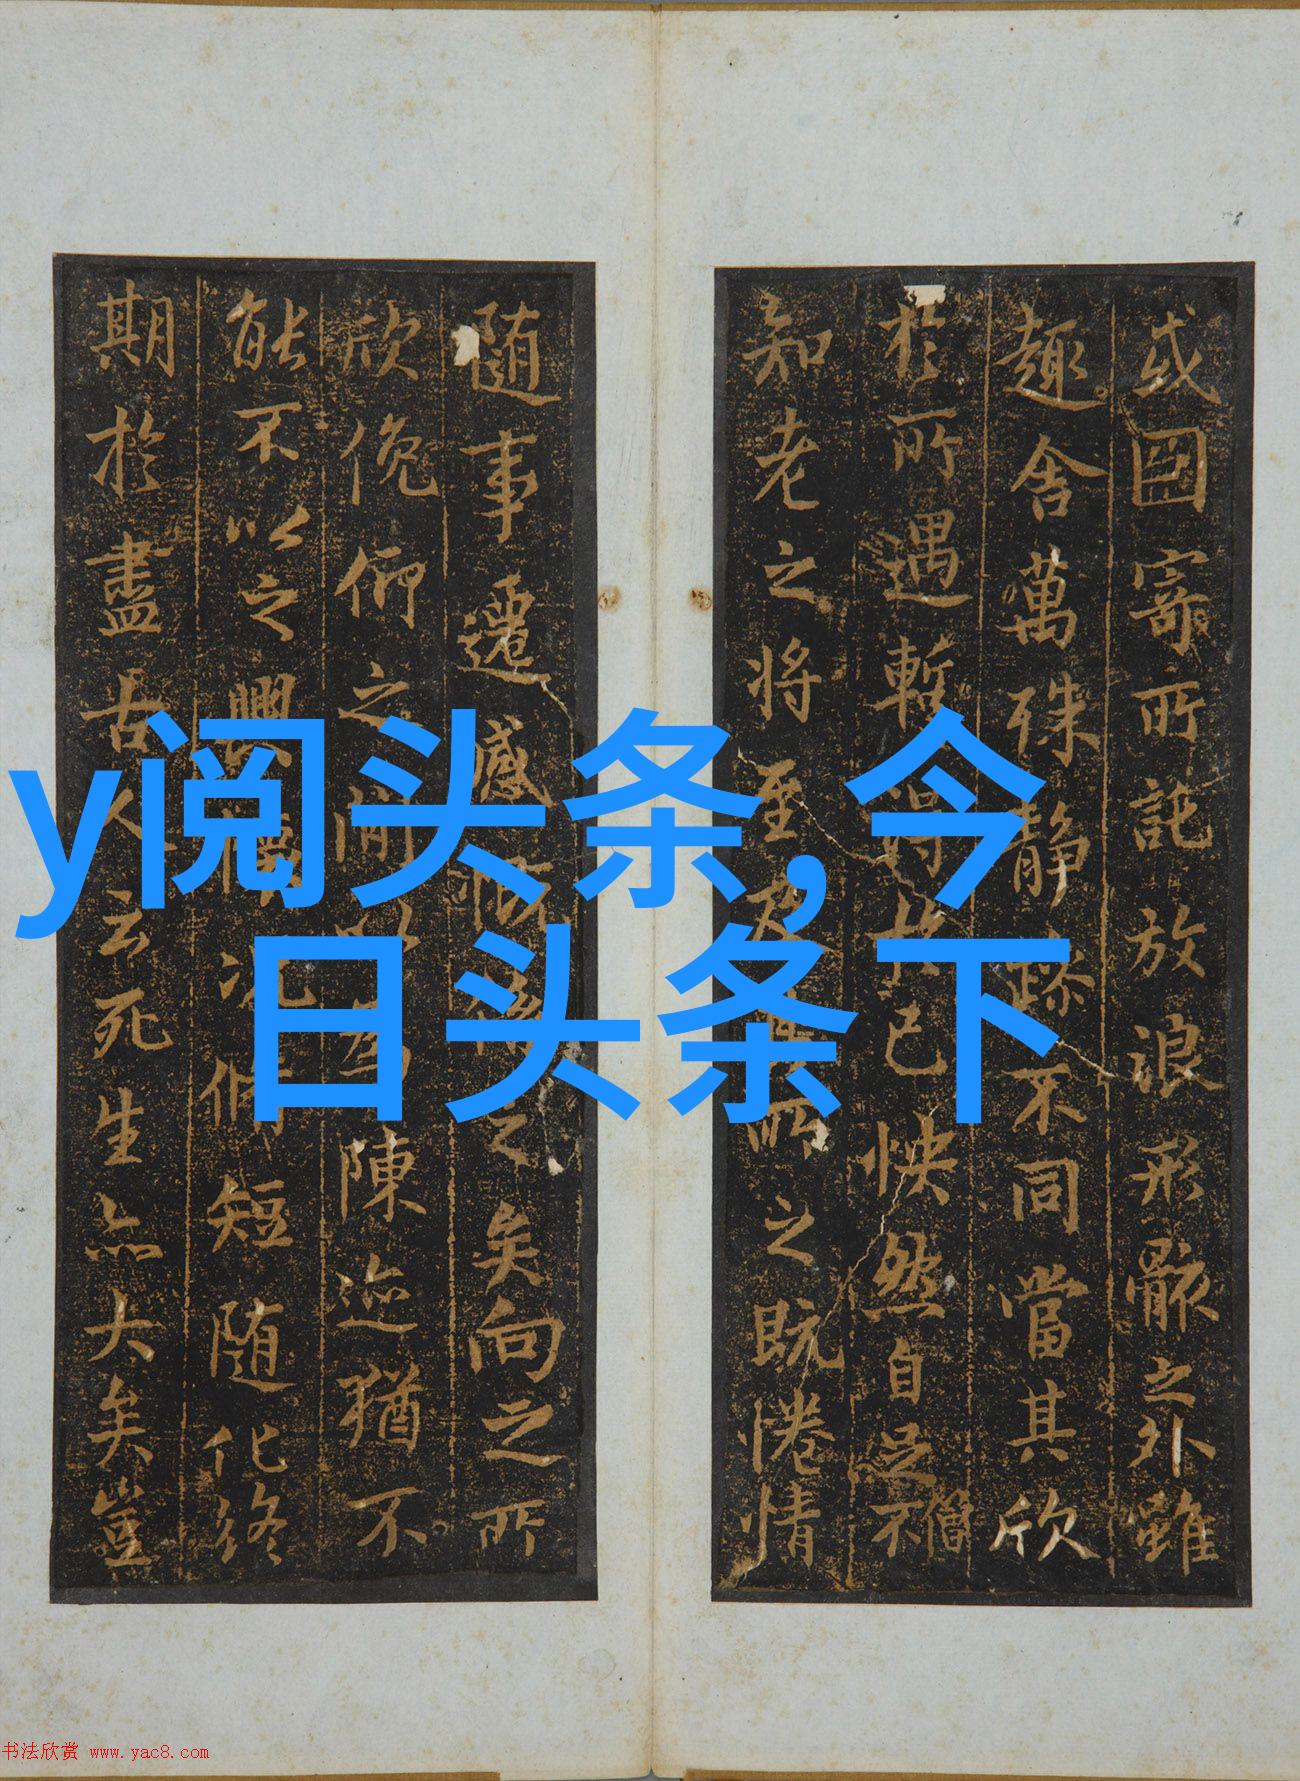 或因寄所託放浪形骸之外雖
趣舍萬殊静躁不同當其欣
於所遇暫己怏然自足不
僧
知老之将至所之既惓情
随事遷感慨係之矣向之所
欣俛仰之閒陳迹猶不
能不以之興況脩短随化終
期於盡古人云死生亦大矣豈
y阅头条,今
日头条下
书法欣赏 www.yac8.com